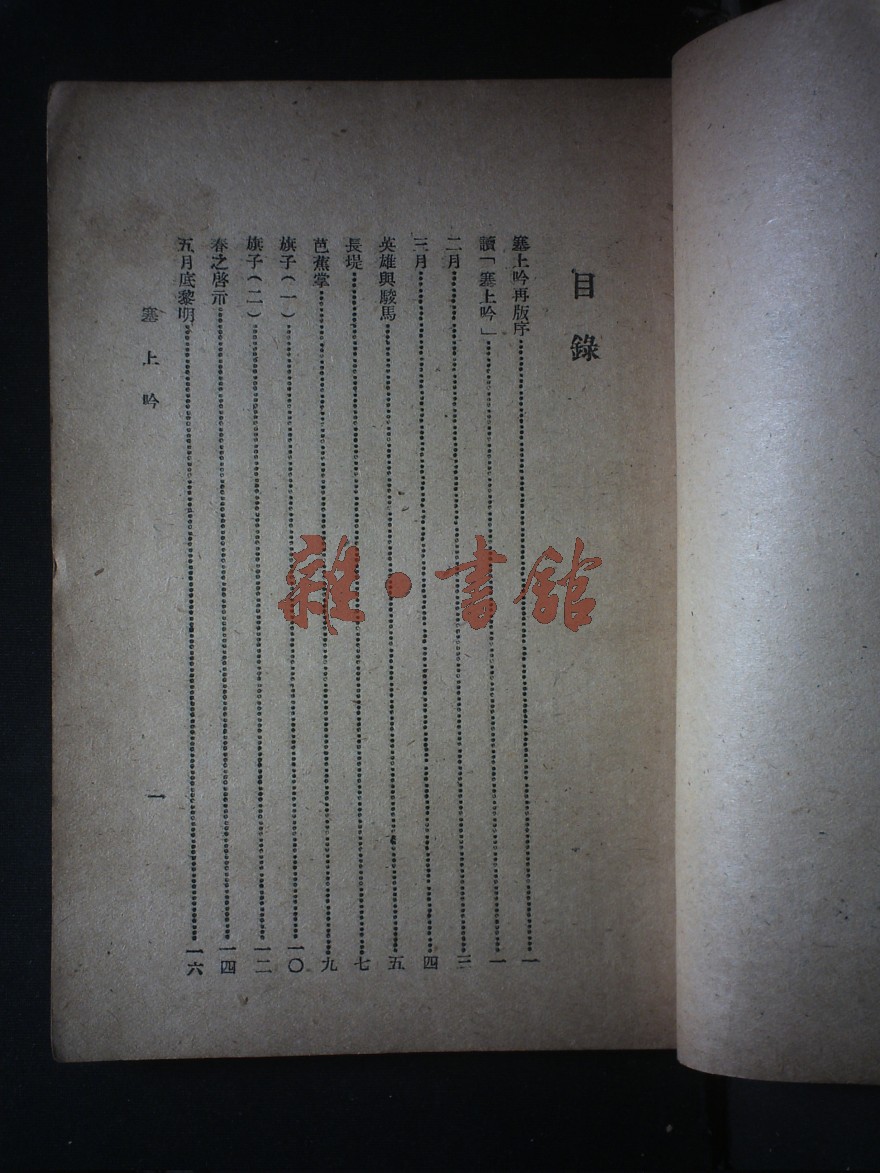 目錄
塞上吟再版序 一
讀「塞上吟」 一
二月 三
三月 四
英雄與駿馬 五
長堤 七
芭蕉掌 九
旗子(一) 一〇
旗子(二) 一二
春之啓示 一四
五月底黎明 一六
塞上吟 一
雜·書館